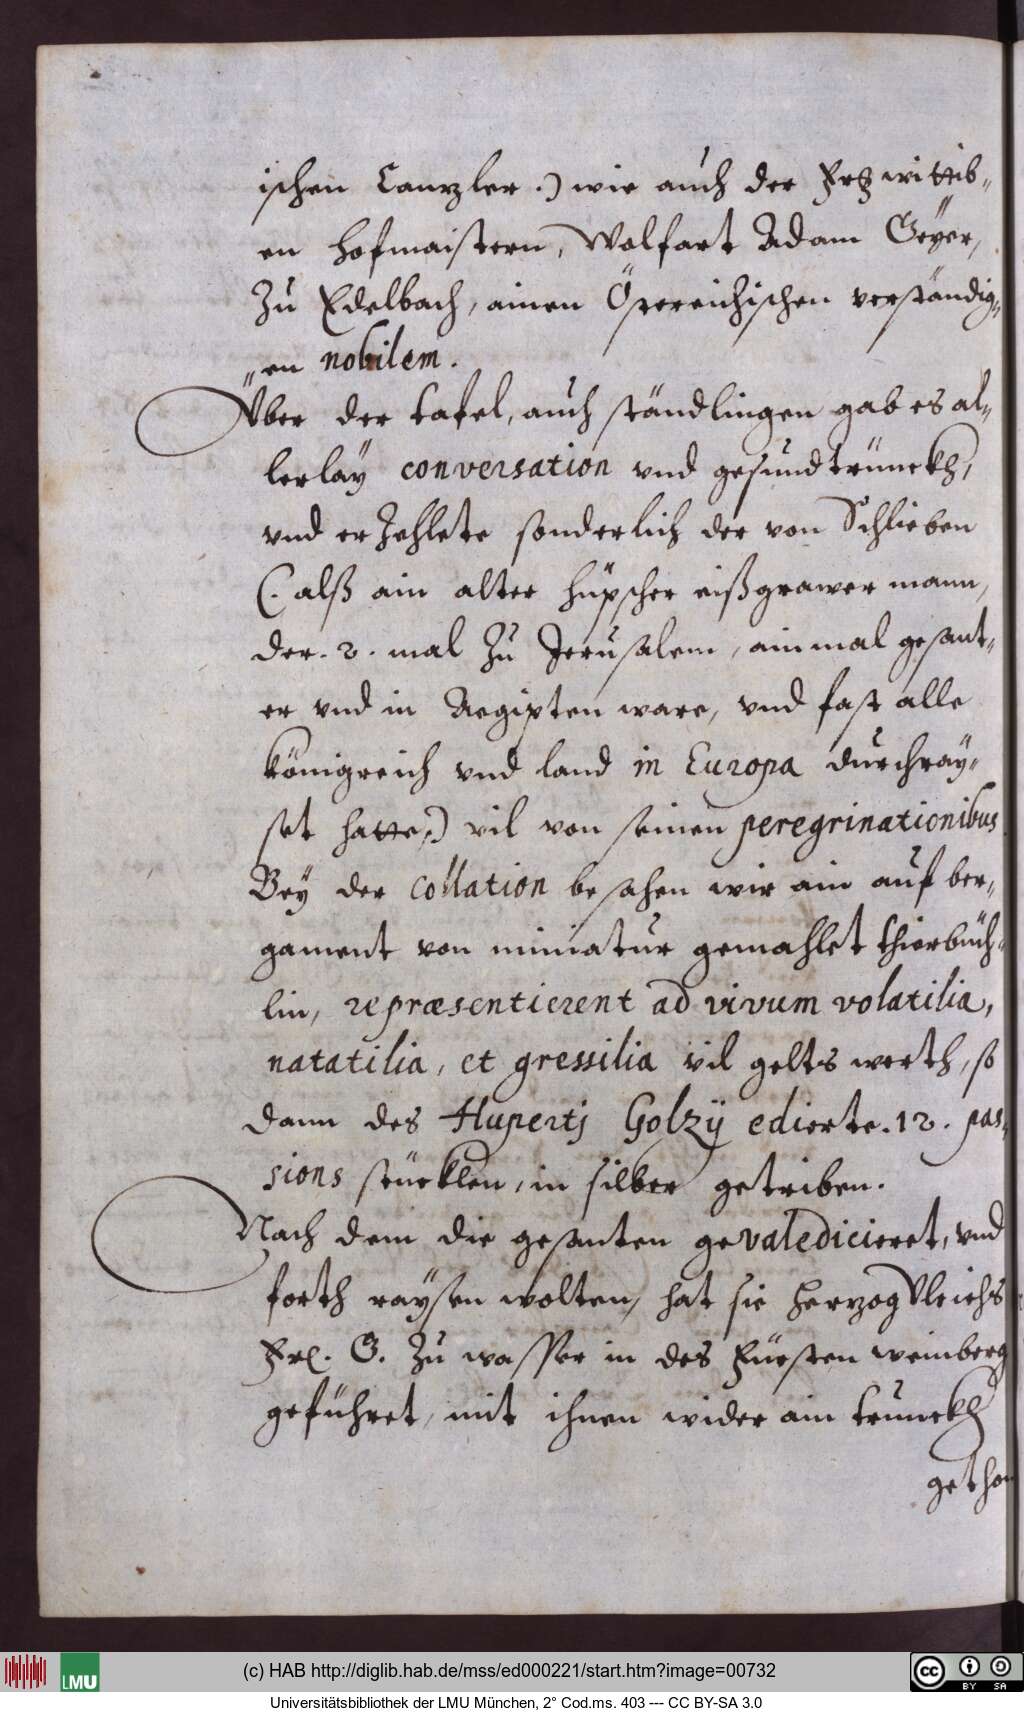 ischen Canzler.) wie auch der Frg wittib„
en hofmaistern, Wolfart Adam Geÿer,
Zu Edelbach, ainen Österreichischen verständig„
„en nobilem.
Über der tafel, auch ständlingen gab es al„
lerlaÿ conversation vnd gesundtrünckh,
vnd erzehlete sonderlich der von Schlieben
(. alß ain alter hüpscher eißgrawer mann,
der .2. mal Zu Jerusalem, ainmal gesant„
er vnd in Aegipten ware, vnd fast alle
königreich vnd land in Europa durchraÿ„
set hatte,) vil von seinen peregrinationibus
Beÿ der collation besahen wir ain auf ber„
gament von miniatur gemahlet thierbüch„
lin, repræsentierent ad vivum volatilia,
natatilia, et gressilia vil gelts werth, so
dann des Hupertj Golzij edierte .12. pas„
sions stücklen, in silber getriben.
Nach dem die gesanten gevaledicieret, vnd
forth raÿsen wolten, hat sie herzog Vlrichs
Frl. G. Zu wasser in des Fürsten weinberg
geführet, mit ihnen wider ain trunckh
gethon
(c) HAB http://diglib.hab.de/mss/ed000221/start.htm?image=00732
LMU
cc BY SA
Universitätsbibliothek der LMU München, 2° Cod.ms. 403 --- CC BY-SA 3.0